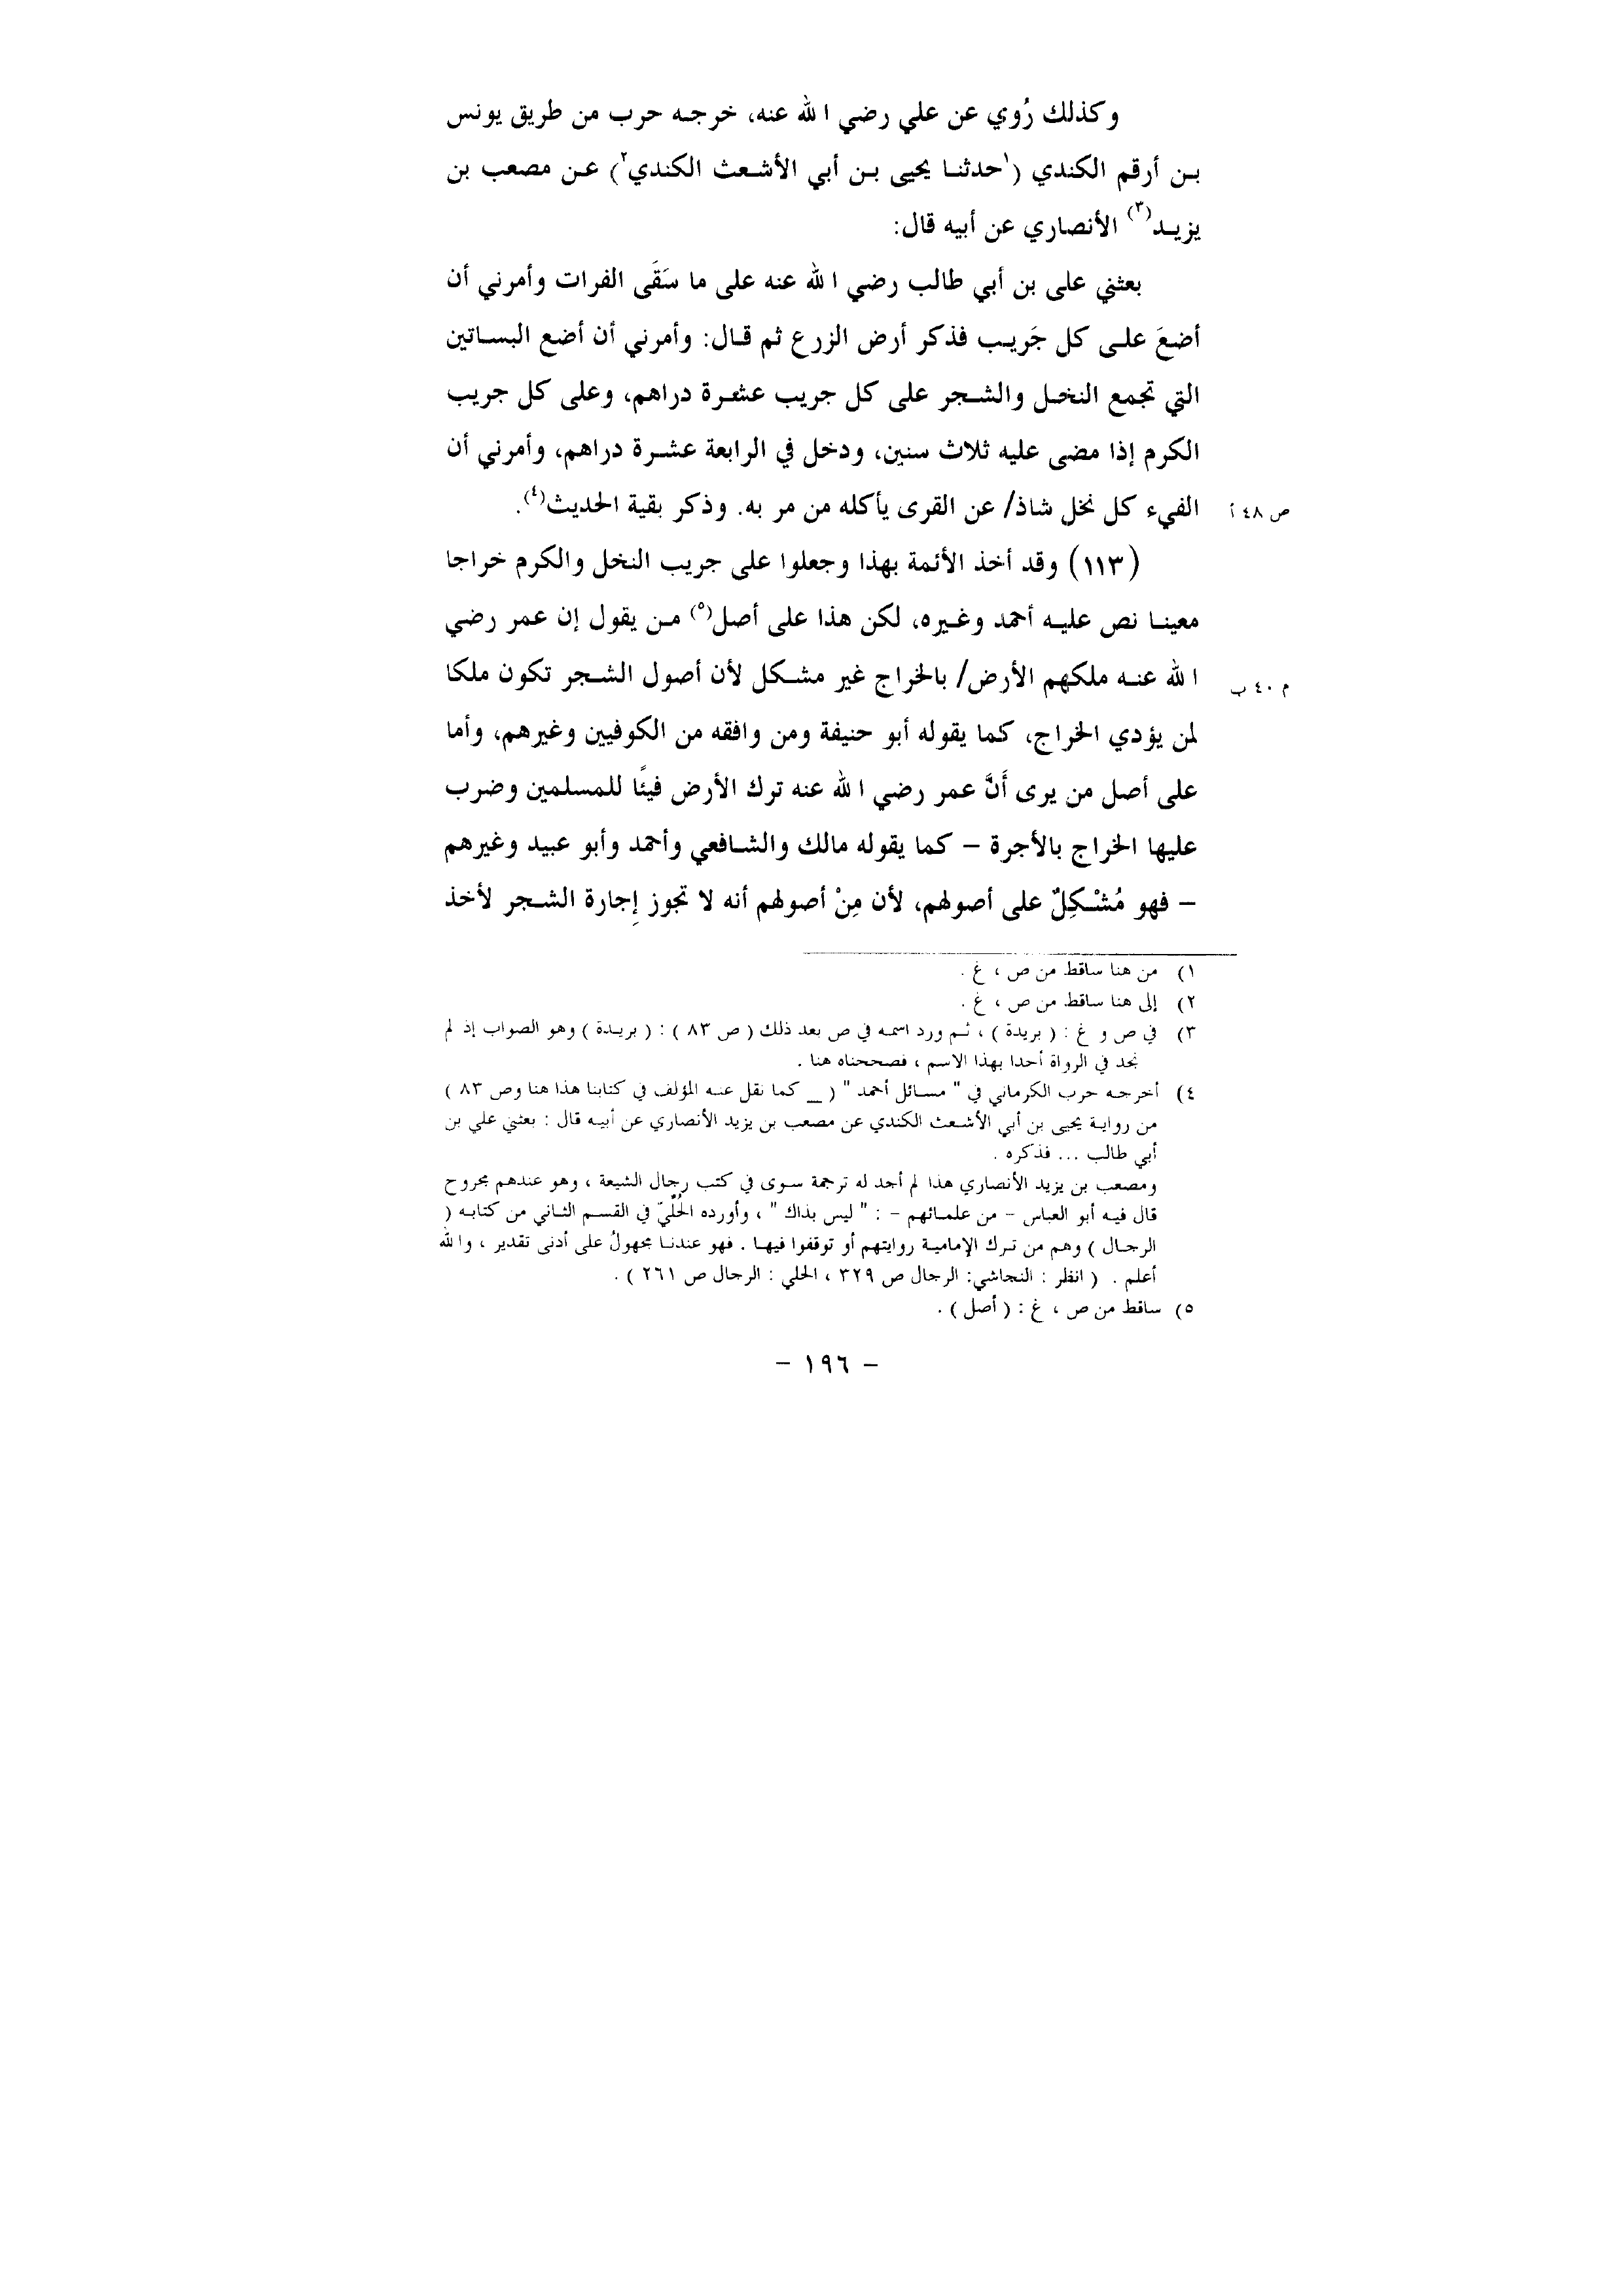 وكذلك رُوي عن علي رضي الله عنه، خرجه حرب من طريق يونس
بن أرقم الكندي (١حدثنا يحيى بن أبي الأشعث الكندي٢) عن مصعب بن
يزيد(٣) الأنصاري عن أبيه قال:
بعثني على بن أبي طالب رضي الله عنه على ما سَقَى الفرات وأمرني أن
أضعَ على كل جَريب فذكر أرض الزرع ثم قال: وأمرني أن أضع البساتين
التي تجمع النخل والشجر على كل جريب عشرة دراهم، وعلى كل جريب
الكرم إذا مضى عليه ثلاث سنين، ودخل في الرابعة عشرة دراهم، وأمرني أن
الفيء كل نخل شاذ/ عن القرى يأكله من مر به. وذكر بقية الحديث(٤).
ص ٤٨ أ
(١١٣) وقد أخذ الأئمة بهذا وجعلوا على جريب النخل والكرم خراجا
معينا نص عليه أحمد وغيره، لكن هذا على أصل(٥) من يقول إن عمر رضي
الله عنه ملكهم الأرض/ بالخراج غير مشكل لأن أصول الشجر تكون ملكا
م ٤٠ ب
لمن يؤدي الخراج، كما يقوله أبو حنيفة ومن وافقه من الكوفيين وغيرهم، وأما
على أصل من يرى أَنَّ عمر رضي الله عنه ترك الأرض فيئًا للمسلمين وضرب
عليها الخراج بالأجرة – كما يقوله مالك والشافعي وأحمد وأبو عبيد وغيرهم
– فهو مُشْكِلٌ على أصولهم، لأن مِنْ أصولهم أنه لا تجوز إِجارة الشجر لأخذ
١) من هنا ساقط من ص ، غ .
٢) إلى هنا ساقط من ص ، غ .
٣) في ص و غ : ( بريدة ) ، ثم ورد اسمه في ص بعد ذلك ( ص ٨٣ ) : ( بريدة ) وهو الصواب إذ لم
نجد في الرواة أحدا بهذا الاسم ، فصححناه هنا .
٤) أخرجه حرب الكرماني في " مسائل أحمد " ( _ كما نقل عنه المؤلف في كتابنا هذا هنا وص ٨٣ )
من رواية يحيى بن أبي الأشعث الكندي عن مصعب بن يزيد الأنصاري عن أبيه قال : بعثني علي بن
أبي طالب ... فذكره .
ومصعب بن يزيد الأنصاري هذا لم أجد له ترجمة سوى في كتب رجال الشيعة ، وهو عندهم مجروح
قال فيه أبو العباس – من علمائهم – : " ليس بذاك " ، وأورده الحُلِّيّ في القسم الثاني من كتابه (
الرجال ) وهم من ترك الإمامية روايتهم أو توقفوا فيها . فهو عندنا مجهولُ على أدنى تقدير ، والله
أعلم . ( انظر : النجاشي: الرجال ص ٣٢٩ ، الحلي : الرجال ص ٢٦١ ) .
٥) ساقط من ص ، غ : ( أصل ) .
– ١٩٦ –